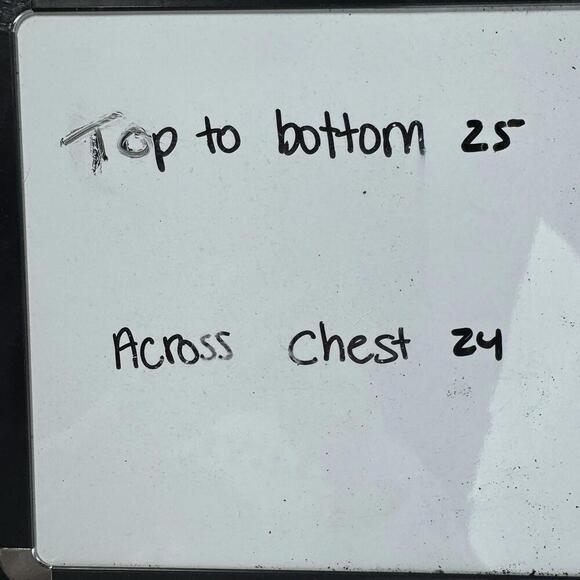 Top to bottom 25
Across Chest 24